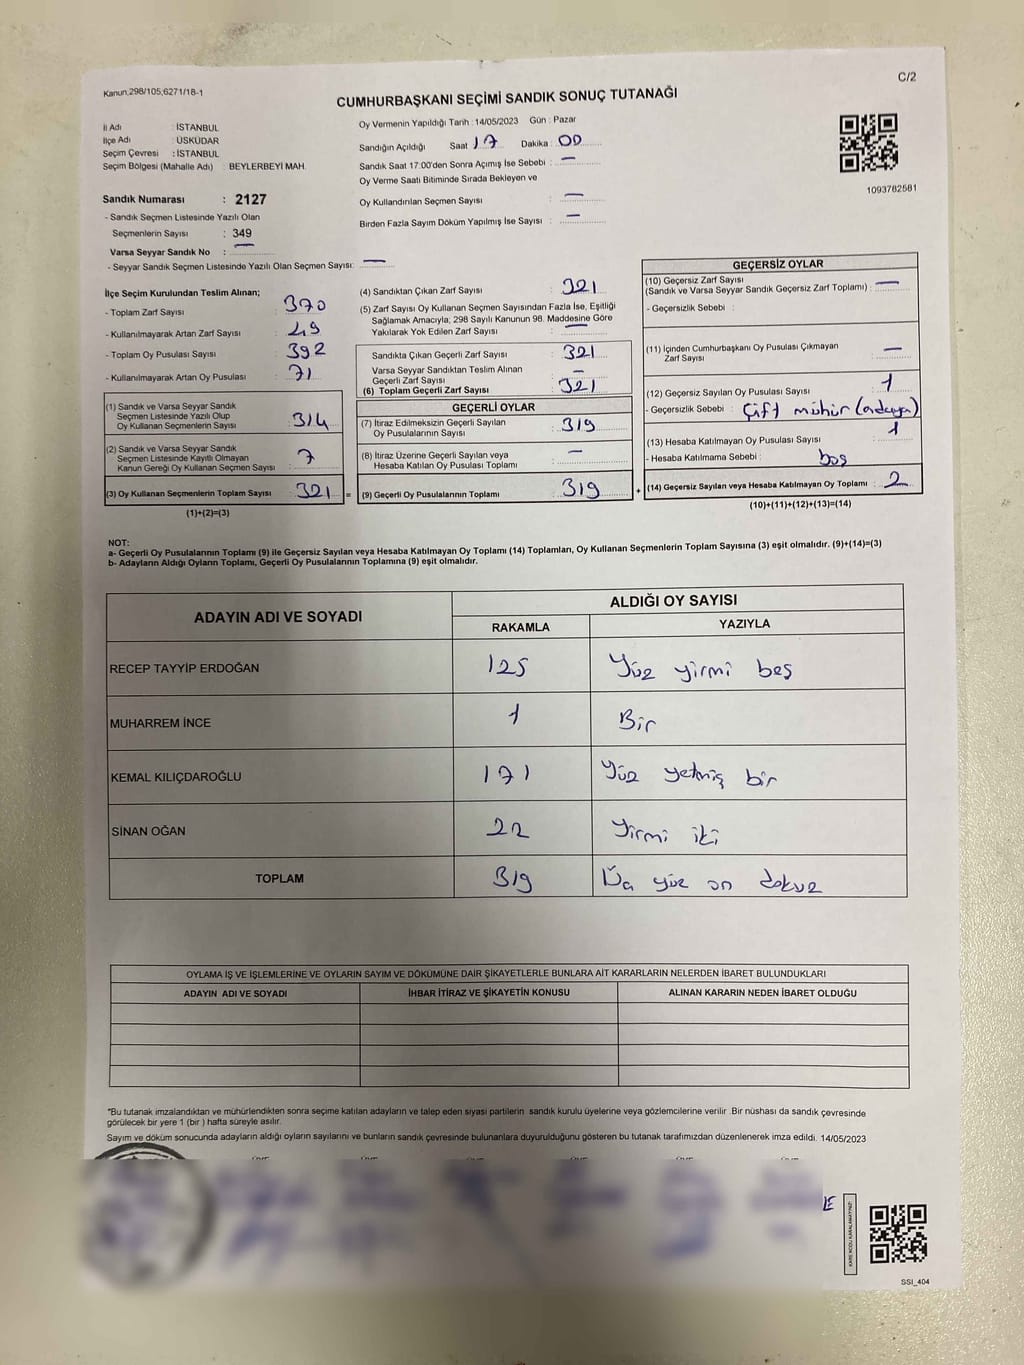 Kanun,298/105,6271/18-1
C/2
CUMHURBAŞKANI SEÇİMİ SANDIK SONUÇ TUTANAĞI
İl Adı : İSTANBUL
İlçe Adı : ÜSKÜDAR
Seçim Çevresi : İSTANBUL
Seçim Bölgesi (Mahalle Adı) : BEYLERBEYİ MAH.
Sandık Numarası : 2127
- Sandık Seçmen Listesinde Yazılı Olan
Seçmenlerin Sayısı : 349
Varsa Seyyar Sandık No : —
- Seyyar Sandık Seçmen Listesinde Yazılı Olan Seçmen Sayısı: —
Oy Vermenin Yapıldığı Tarih : 14/05/2023 Gün : Pazar
Sandığın Açıldığı Saat 17 Dakika : 00
Sandık Saat 17:00'den Sonra Açımış İse Sebebi : —
Oy Verme Saati Bitiminde Sırada Bekleyen ve
Oy Kullandırılan Seçmen Sayısı : —
Birden Fazla Sayım Döküm Yapılmış İse Sayısı : —
1093782581
İlçe Seçim Kurulundan Teslim Alınan;
- Toplam Zarf Sayısı : 370
- Kullanılmayarak Artan Zarf Sayısı : 49
- Toplam Oy Pusulası Sayısı : 392
- Kullanılmayarak Artan Oy Pusulası : 71
(1) Sandık ve Varsa Seyyar Sandık
Seçmen Listesinde Yazılı Olup
Oy Kullanan Seçmenlerin Sayısı : 314
(2) Sandık ve Varsa Seyyar Sandık
Seçmen Listesinde Kayıtlı Olmayan
Kanun Gereği Oy Kullanan Seçmen Sayısı : 7
(3) Oy Kullanan Seçmenlerin Toplam Sayısı : 321 =
(1)+(2)=(3)
(4) Sandıktan Çıkan Zarf Sayısı : 321
(5) Zarf Sayısı Oy Kullanan Seçmen Sayısından Fazla İse, Eşitliği
Sağlamak Amacıyla; 298 Sayılı Kanunun 98. Maddesine Göre
Yakılarak Yok Edilen Zarf Sayısı : —
Sandıkta Çıkan Geçerli Zarf Sayısı : 321
Varsa Seyyar Sandıktan Teslim Alınan
Geçerli Zarf Sayısı : —
(6) Toplam Geçerli Zarf Sayısı : 321
GEÇERLİ OYLAR
(7) İtiraz Edilmeksizin Geçerli Sayılan
Oy Pusulalarının Sayısı : 319
(8) İtiraz Üzerine Geçerli Sayılan veya
Hesaba Katılan Oy Pusulası Toplamı : —
(9) Geçerli Oy Pusulalarının Toplamı : 319 +
GEÇERSİZ OYLAR
(10) Geçersiz Zarf Sayısı
(Sandık ve Varsa Seyyar Sandık Geçersiz Zarf Toplamı) : —
- Geçersizlik Sebebi :
(11) İçinden Cumhurbaşkanı Oy Pusulası Çıkmayan
Zarf Sayısı : —
(12) Geçersiz Sayılan Oy Pusulası Sayısı : 1
- Geçersizlik Sebebi : Çift mühür
(13) Hesaba Katılmayan Oy Pusulası Sayısı : 1
- Hesaba Katılmama Sebebi : boş
(14) Geçersiz Sayılan veya Hesaba Katılmayan Oy Toplamı : 2
(10)+(11)+(12)+(13)=(14)
NOT:
a- Geçerli Oy Pusulalarının Toplamı (9) ile Geçersiz Sayılan veya Hesaba Katılmayan Oy Toplamı (14) Toplamları, Oy Kullanan Seçmenlerin Toplam Sayısına (3) eşit olmalıdır. (9)+(14)=(3)
b- Adayların Aldığı Oyların Toplamı, Geçerli Oy Pusulalarının Toplamına (9) eşit olmalıdır.
ADAYIN ADI VE SOYADI ALDIĞI OY SAYISI
RAKAMLA YAZIYLA
RECEP TAYYİP ERDOĞAN 125 Yüz yirmi beş
MUHARREM İNCE 1 Bir
KEMAL KILIÇDAROĞLU 171 Yüz yetmiş bir
SİNAN OĞAN 22 Yirmi iki
TOPLAM 319 Üç yüz on dokuz
OYLAMA İŞ VE İŞLEMLERİNE VE OYLARIN SAYIM VE DÖKÜMÜNE DAİR ŞİKAYETLERLE BUNLARA AİT KARARLARIN NELERDEN İBARET BULUNDUKLARI
ADAYIN ADI VE SOYADI İHBAR İTİRAZ VE ŞİKAYETİN KONUSU ALINAN KARARIN NEDEN İBARET OLDUĞU
*Bu tutanak imzalandıktan ve mühürlendikten sonra seçime katılan adayların ve talep eden siyasi partilerin sandık kurulu üyelerine veya gözlemcilerine verilir .Bir nüshası da sandık çevresinde
görülecek bir yere 1 (bir ) hafta süreyle asılır.
Sayım ve döküm sonucunda adayların aldığı oyların sayılarını ve bunların sandık çevresinde bulunanlara duyurulduğunu gösteren bu tutanak tarafımızdan düzenlenerek imza edildi. 14/05/2023
KARE KODU KARALAMAYINIZ!
SSI_404